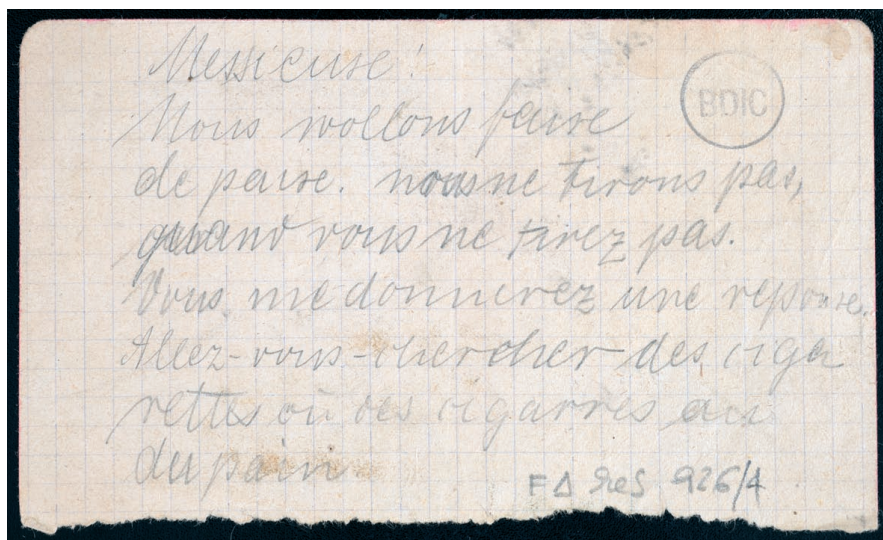 Messieuse!
BDIC
Nous wollons faire
de paise. nous ne tirons pas,
quand vous ne tirez pas.
Vous me donnerez une reponse.
Allez-vous-chercher des ciga
rettes où des cigarres au
du pain
F∆ Res 926/4